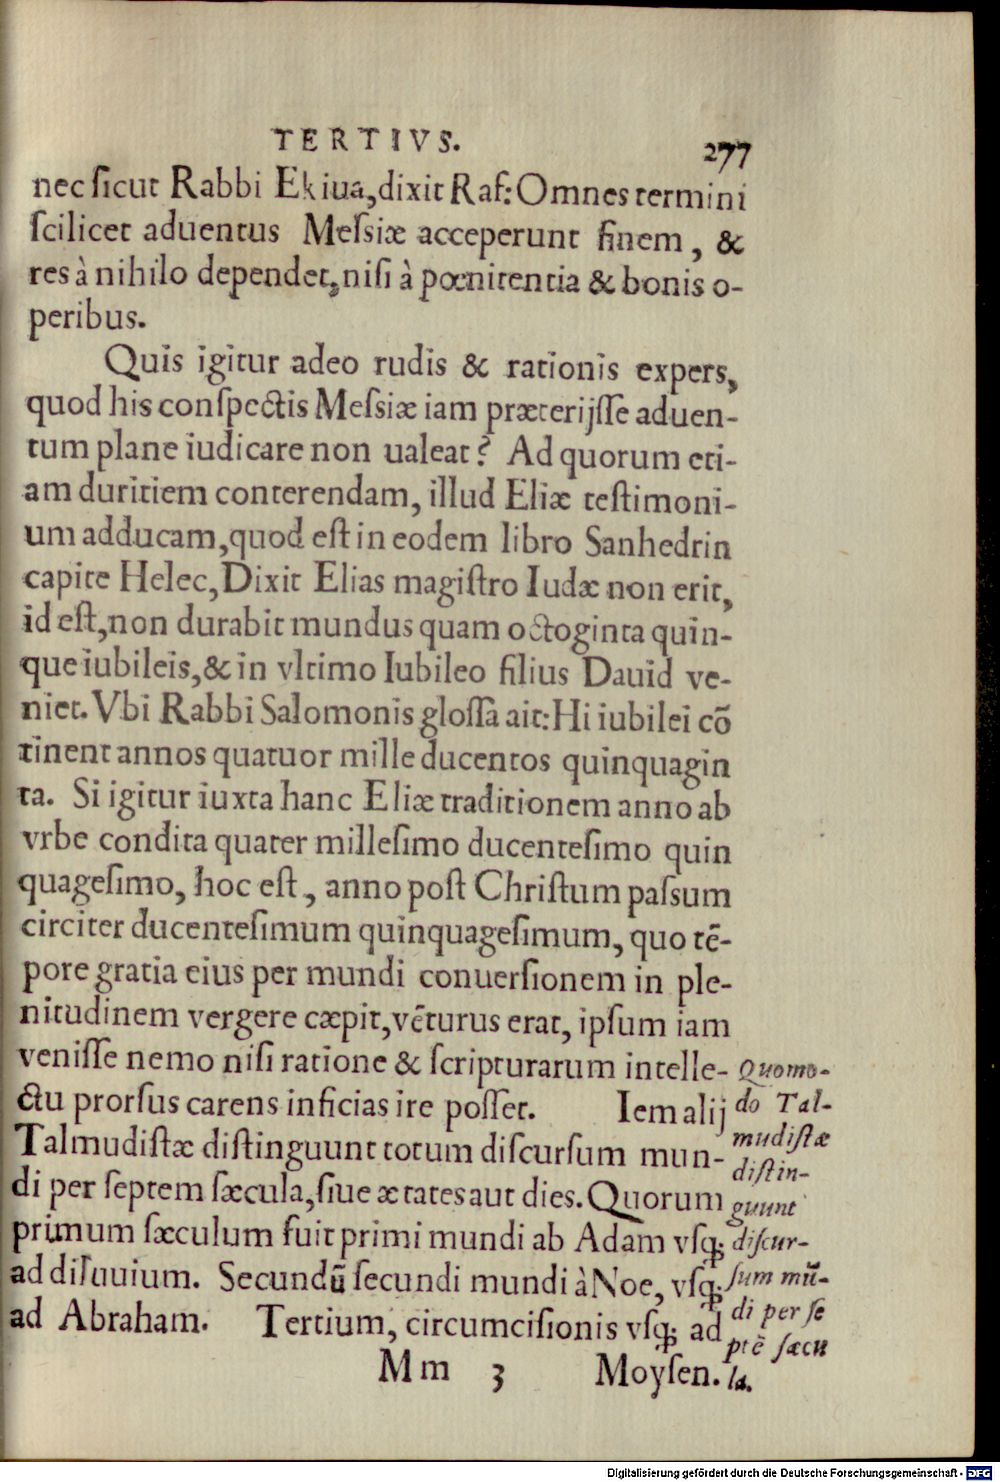 TERTIVS. 277
nec ſicut Rabbi Ekiua,dixit Raſ: Omnes termini
ſcilicet aduentus Meſsiæ acceperunt finem, &
res à nihilo dependet,niſi à pœnitentia & bonis o-
peribus.
Quis igitur adeo rudis & rationis expers,
quod his conſpectis Meſsiæ iam præterijſſe aduen-
tum plane iudicare non ualeat? Ad quorum eti-
am duritiem conterendam, illud Eliæ teſtimoni-
um adducam,quod eſt in eodem libro Sanhedrin
capite Helec,Dixit Elias magiſtro Iudæ non erit,
id eſt,non durabit mundus quam octoginta quin-
que iubileis,& in vltimo Iubileo filius Dauid ve-
niet. Vbi Rabbi Salomonis gloſſa ait: Hi iubilei cō
tinent annos quatuor mille ducentos quinquagin
ta. Si igitur iuxta hanc Eliæ traditionem anno ab
vrbe condita quater milleſimo ducenteſimo quin
quageſimo, hoc eſt, anno poſt Chriſtum paſsum
circiter ducenteſimum quinquageſimum, quo tē-
pore gratia eius per mundi conuerſionem in ple-
nitudinem vergere cæpit,vēturus erat, ipſum iam
veniſſe nemo niſi ratione & ſcripturarum intelle-
ctu prorſus carens inficias ire poſſet. Iem alij
Talmudiſtæ diſtinguunt totum diſcurſum mun-
di per ſeptem ſæcula,ſiue ætates aut dies. Quorum
primum ſæculum fuit primi mundi ab Adam vſq;
ad diluuium. Secundū ſecundi mundi à Noe, vſq;
ad Abraham. Tertium, circumciſionis vſq; ad
Mm 3 Moyſen.
Quomo-
do Tal-
mudiſtæ
diſtin-
guunt
diſcur-
ſum mū-
di per ſe
ptē ſæcu
la.
Digitalisierung gefördert durch die Deutsche Forschungsgemeinschaft - DFG